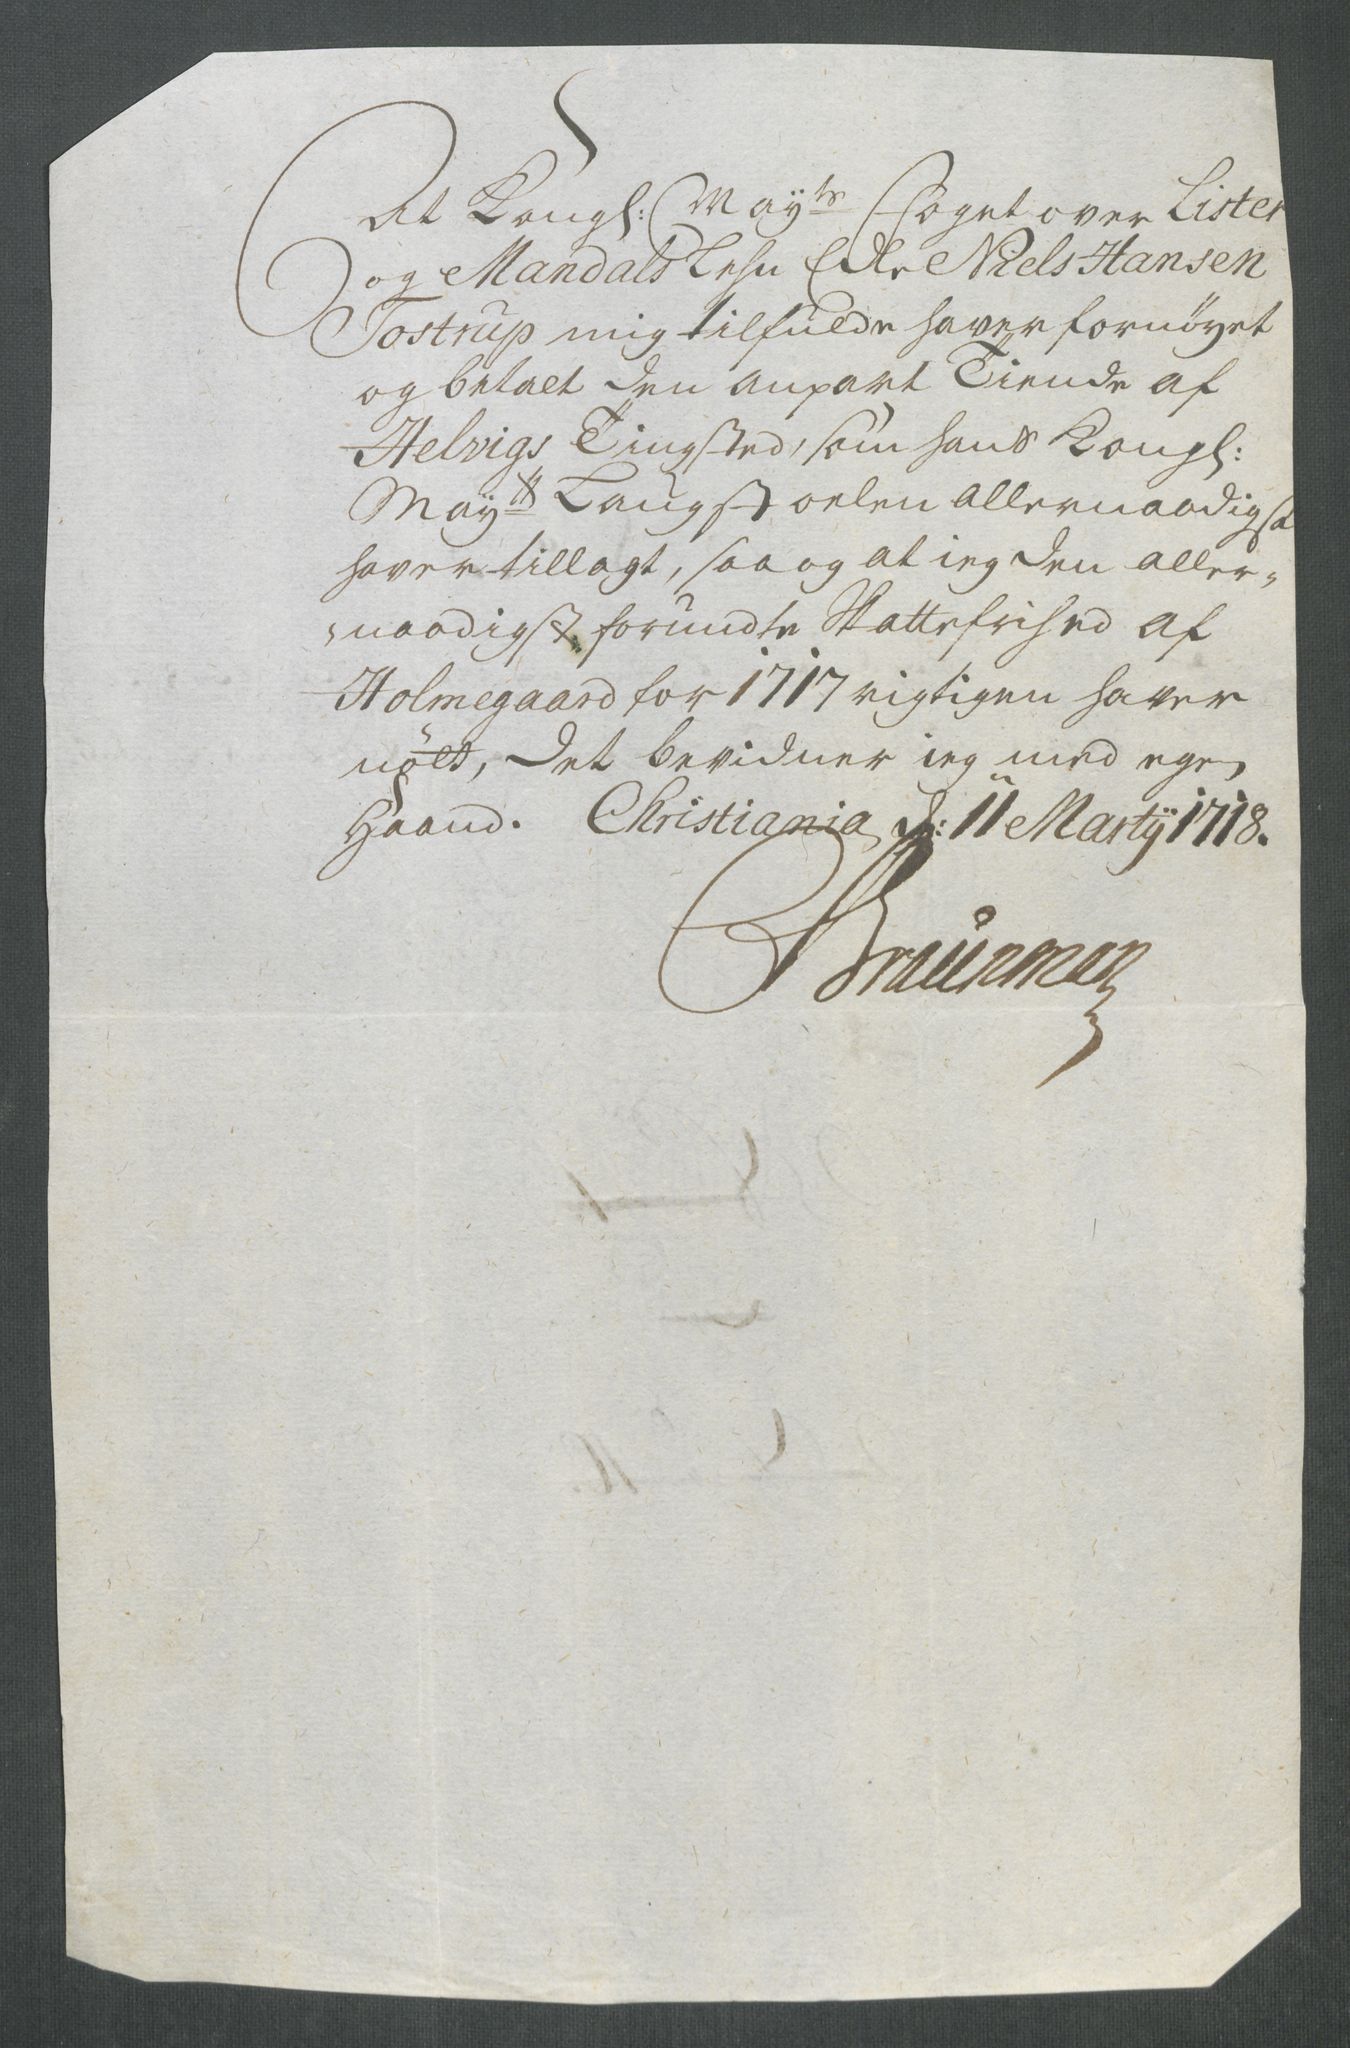 At Kongl: May:ts Foget over Lister
og Mandals Lehn Edle Niels Hansen
Tostrup mig tilfulde haver fornöyet
og betalt den anpart Tiende af
Helvigs Tingsted, som hans Kongl:
May:tt allernaadigst
haver tillagt, saa og at ieg den aller-
naadigst forundte Skattefrihed af
Holmegaard for 1717 rigtigen haver
nött, det bevidner ieg med egen
Haand. Christiania d: 11 Martij 1718.
Braünman